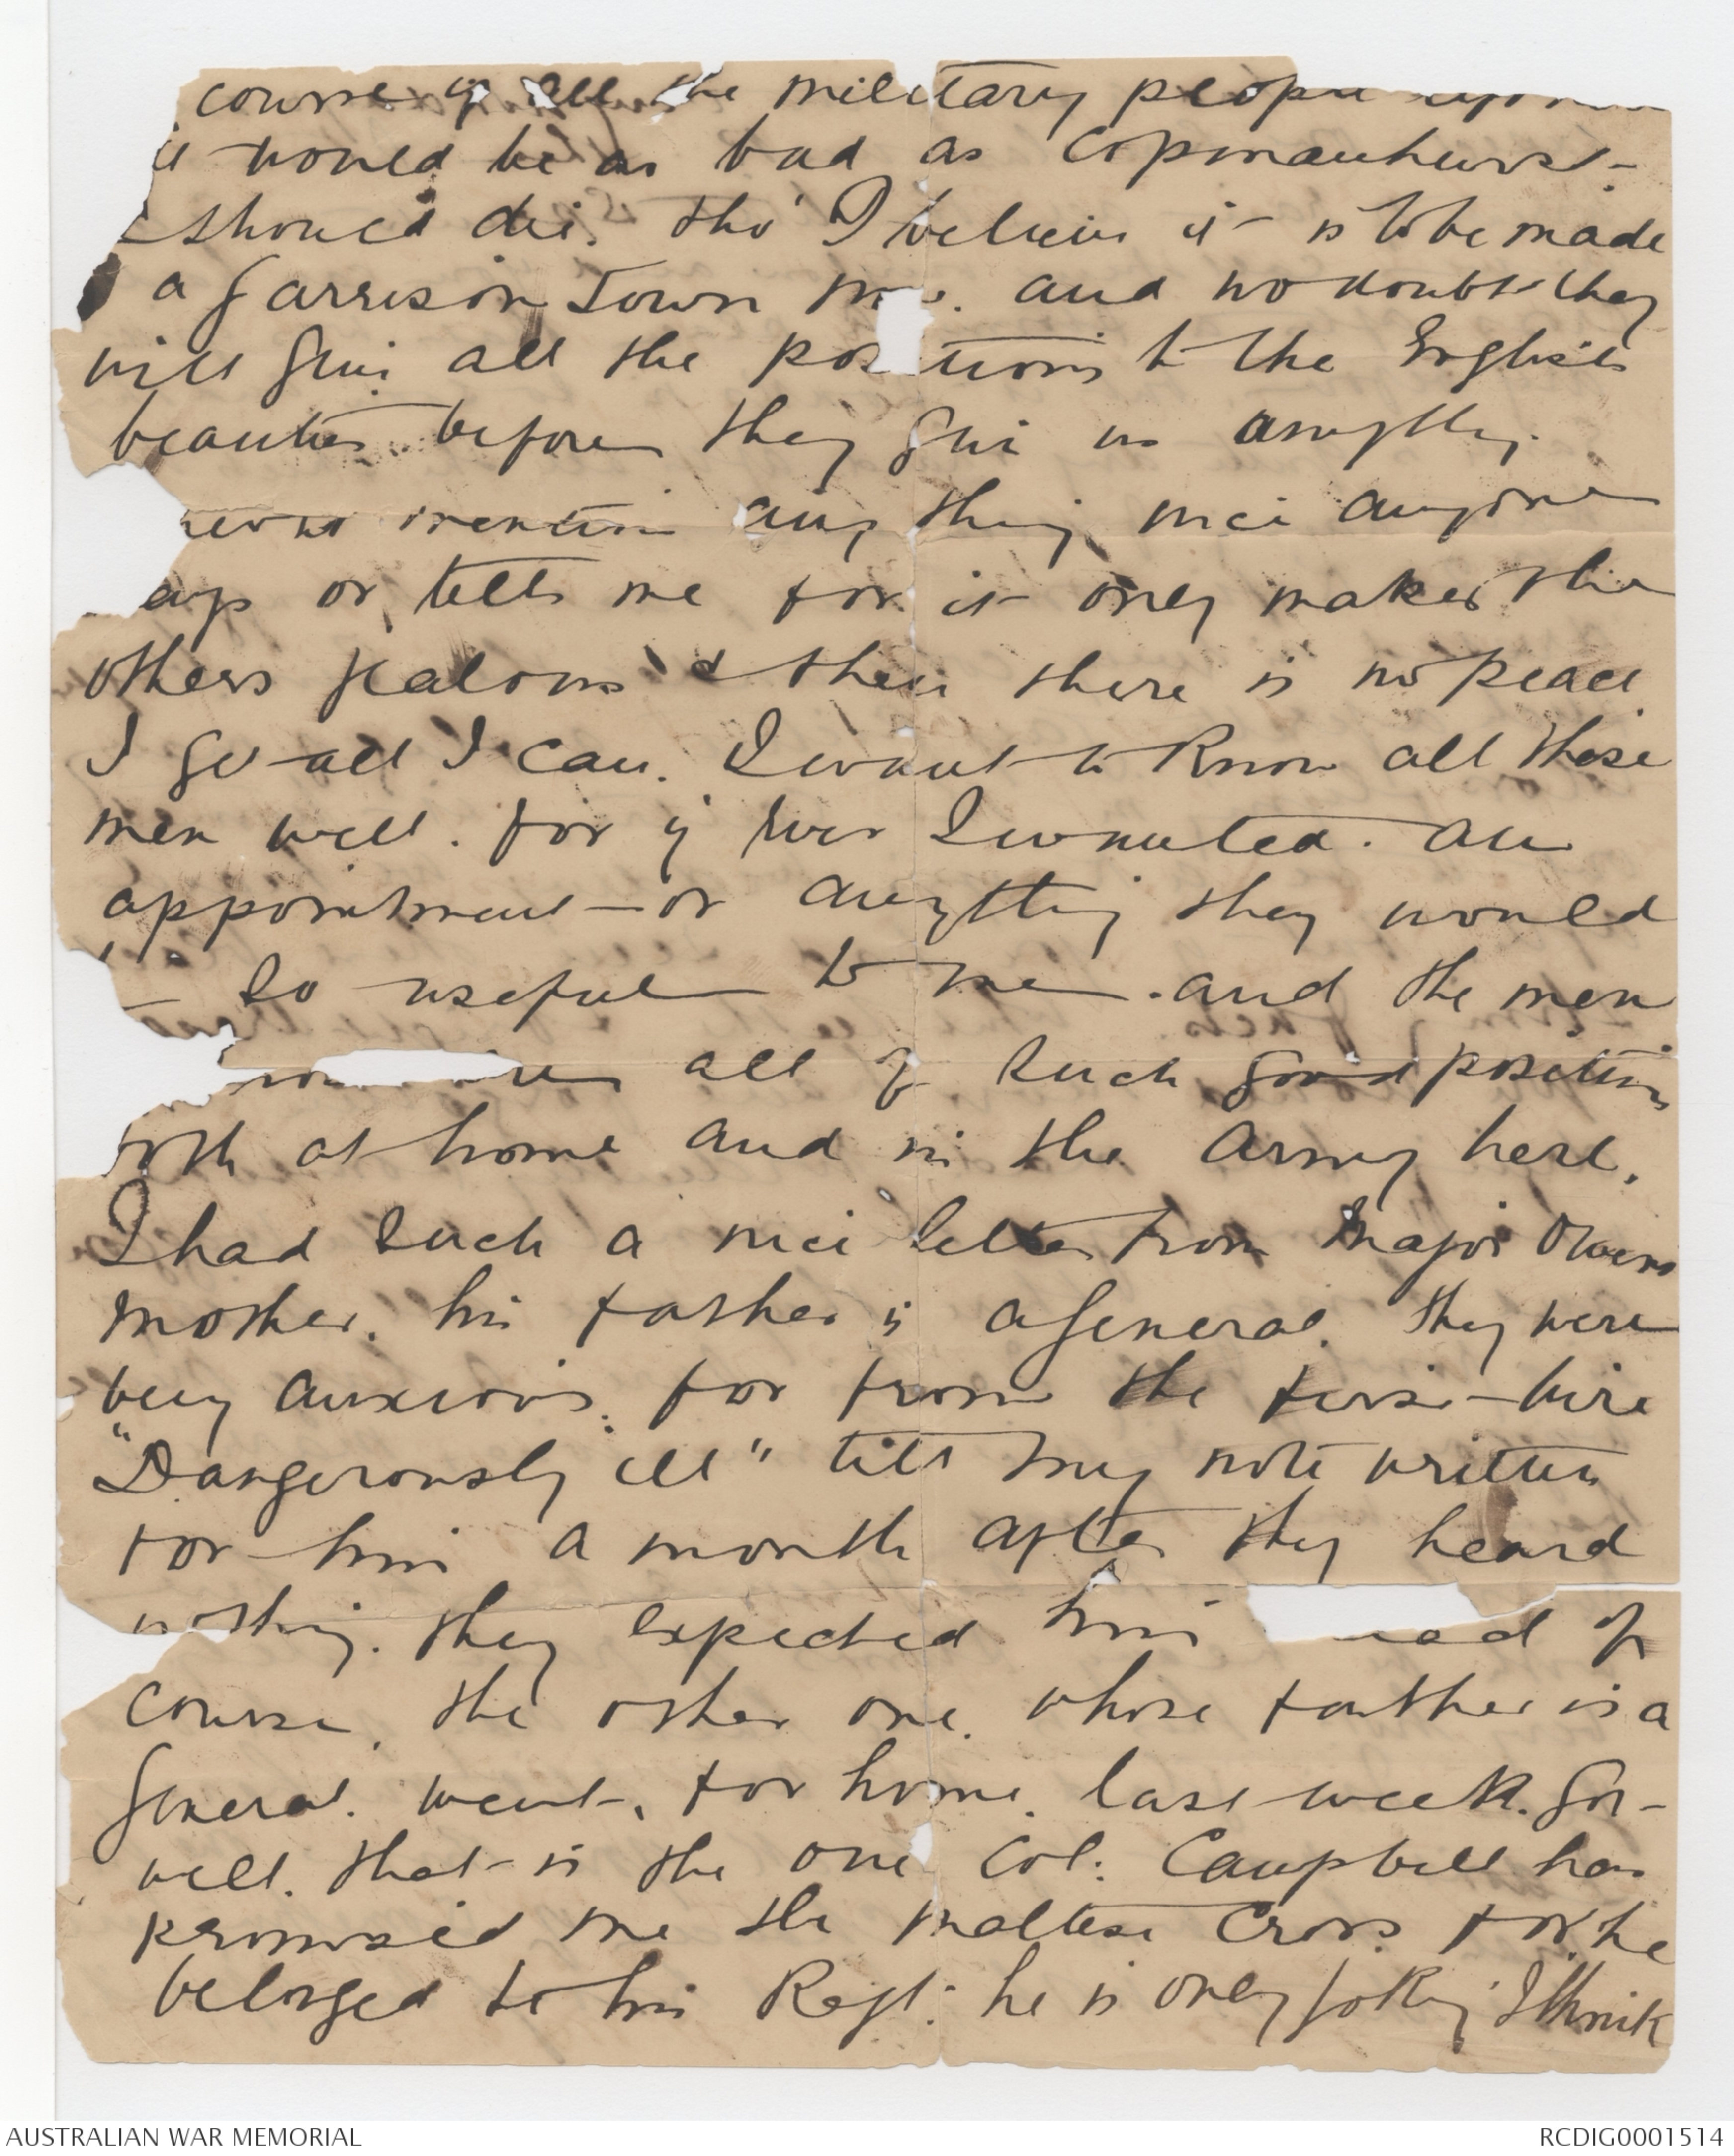 course if all the military people
it would be as bad as Copmanhurst-
I should die. tho' I believe it is to be made
a Garrison Town now. and no doubt they
will give all the positions to the English
beauties before they give us anything.
never mention any thing nice anyone
says or tells me for it only makes the
others jealous & then there is no peace.
I get all I can. I want to know all these
men well. for if ever I wanted. an
appointment - or anything they would
be so useful to me. and the men
all of such good positions
both at home and in the Army here.
I had such a nice letter from Major Owens
mother. his father is a General. they were
very anxious. for from the first wire
"Dangerously ill" till my note written
for him a month after they heard
nothing. they expected him dead of
course, the other one. whose father is a
General. went. for home. last week. Got
well. that is the one Col: Campbell has
promised me the Maltese Cross for. he
belonged to his Regt: he is only joking I think
AUSTRALIAN WAR MEMORIAL
RCDIG0001514